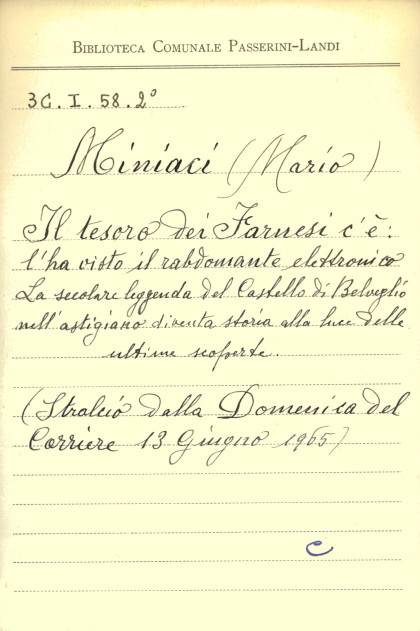 BIBLIOTECA COMUNALE PASSERINI-LANDI
3C. I. 58. 2°
Miniaci (Mario)
Il tesoro dei Farnesi c'è:
l'ha visto il rabdomante elettronico
La secolare leggenda del Castello di Belveglio
nell'astigiano diventa storia alla luce delle
ultime scoperte.
(Stralcio dalla Domenica del
Corriere 13 Giugno 1965)
C